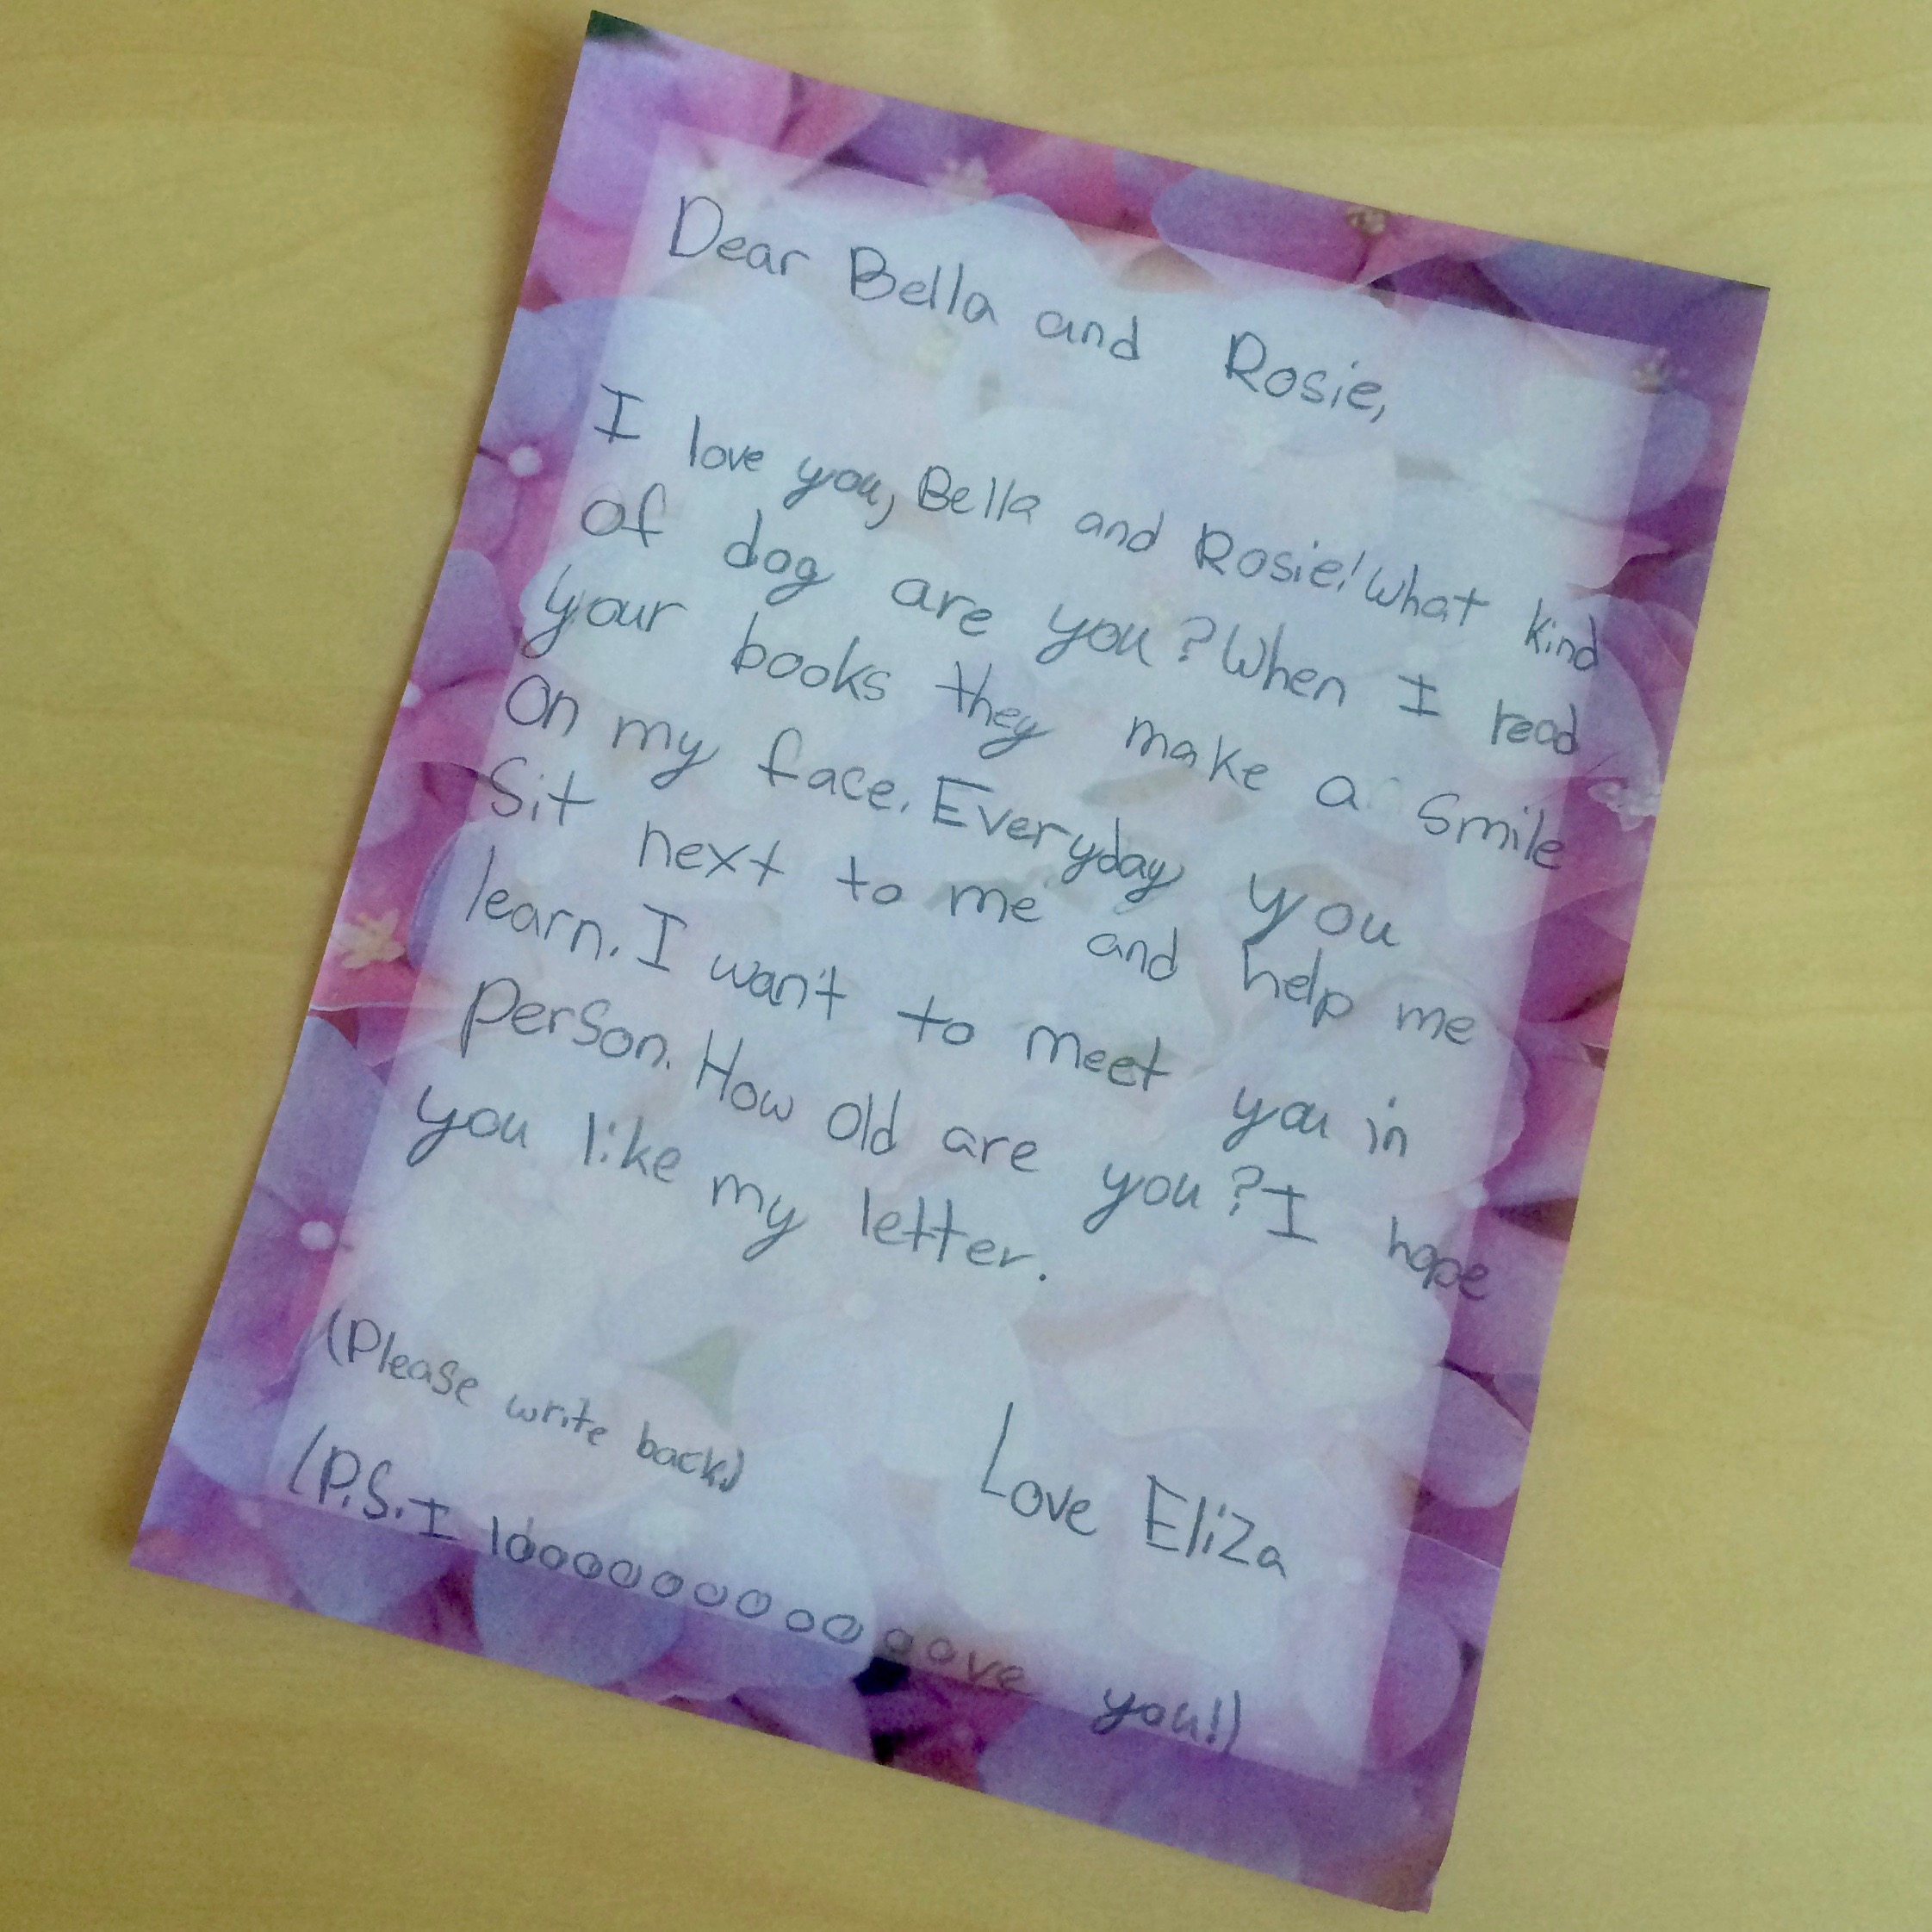 Dear Bella and Rosie,
I love you, Bella and Rosie! What kind
of dog are you? When I read
your books they make a smile
on my face. Everyday you
sit next to me and help me
learn. I wan't to meet you in
person. How old are you? I hope
you like my letter.
(Please write back.)
Love Eliza
(P.S. I looooooooooove you!)